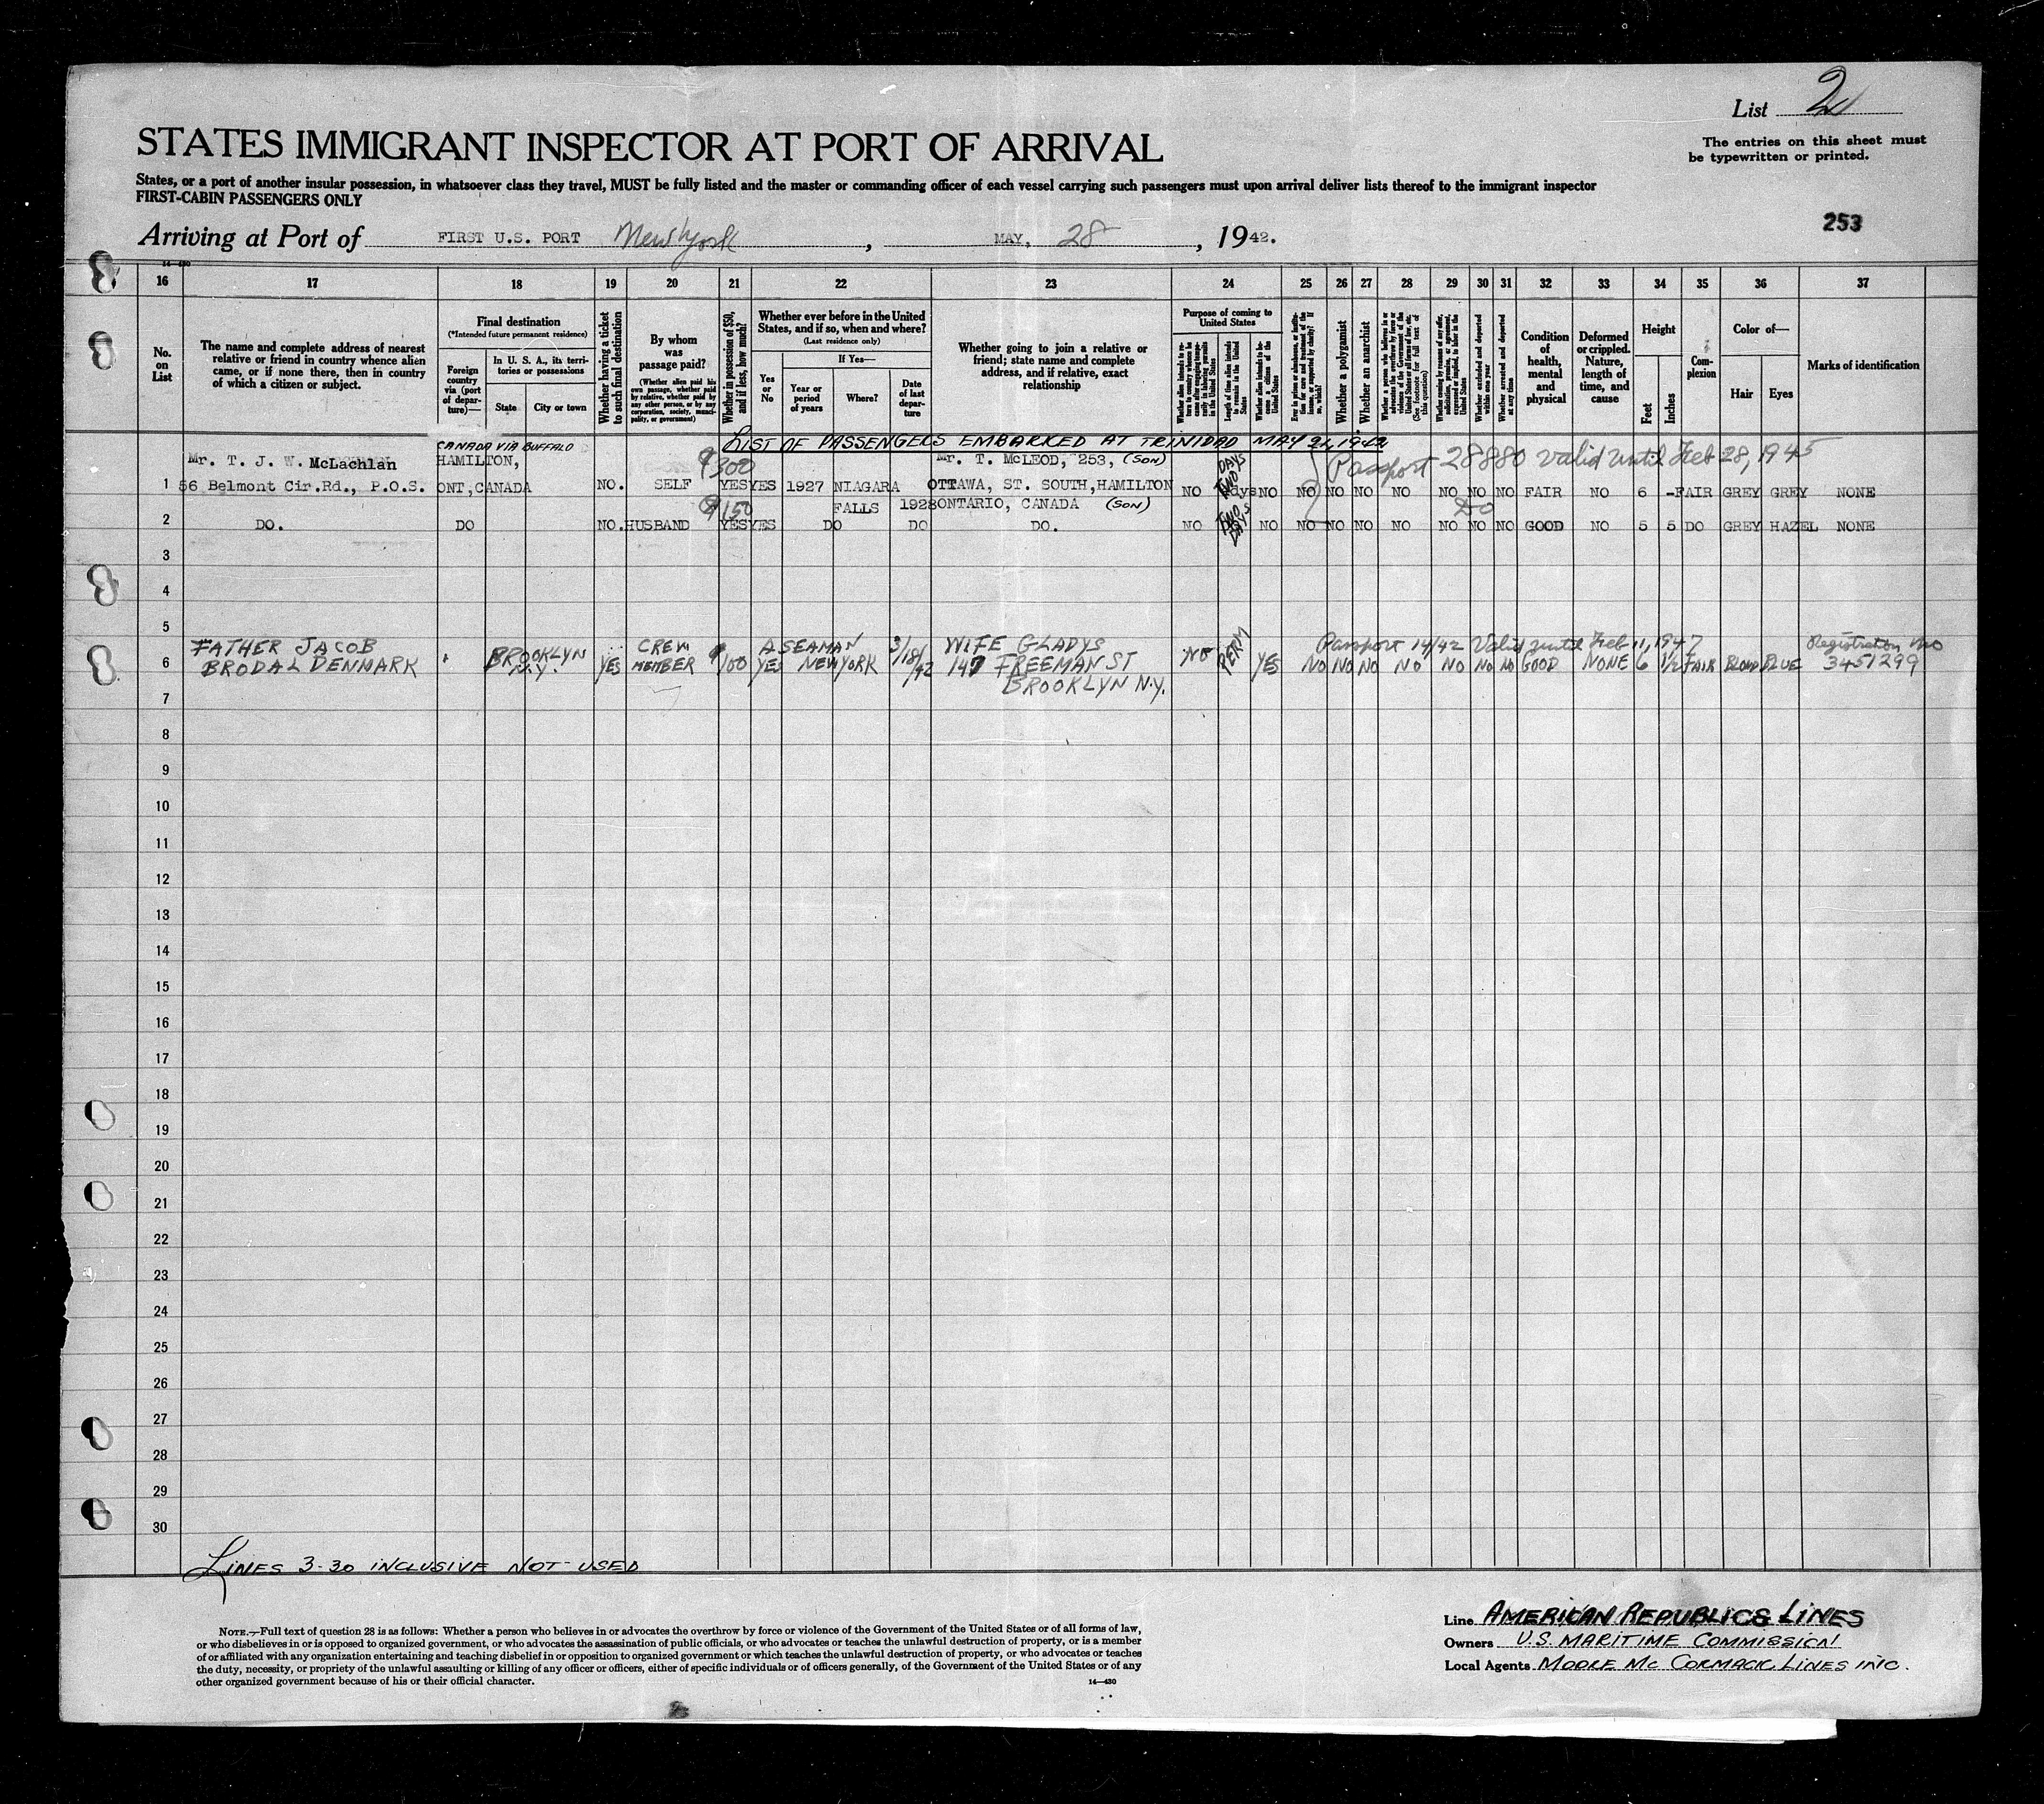 List 2
The entries on this sheet must
be typewritten or printed.
STATES IMMIGRANT INSPECTOR AT PORT OF ARRIVAL
States, or a port of another insular possession, in whatsoever class they travel, MUST be fully listed and the master or commanding officer of each vessel carrying such passengers must upon arrival deliver lists thereof to the immigrant inspector
FIRST-CABIN PASSENGERS ONLY
253
Arriving at Port of FIRST U.S. PORT New York, MAY, 28, 1942.
14-430
16 17 18 19 20 21 22 23 24 25 26 27 28 29 30 31 32 33 34 35 36 37
No.
on
List
The name and complete address of nearest
relative or friend in country whence alien
came, or if none there, then in country
of which a citizen or subject.
Final destination
(*Intended future permanent residence)
Foreign
country
via (port
of depar-
ture)—
In U. S. A., its terri-
tories or possessions
State
City or town
Whether having a ticket
to such final destination
By whom
was
passage paid?
(Whether alien paid his
own passage, whether paid
by relative, whether paid by
any other person, or by any
corporation, society, munici-
pality, or government)
Whether in possession of $50,
and if less, how much?
Whether ever before in the United
States, and if so, when and where?
(Last residence only)
Yes
or
No
If Yes—
Year or
period
of years
Where?
Date
of last
depar-
ture
Whether going to join a relative or
friend; state name and complete
address, and if relative, exact
relationship
Purpose of coming to
United States
Length of time alien intends
to remain in the United
States
Whether alien intends to be-
come a citizen of the
United States
Whether a polygamist
Whether an anarchist
Whether excluded and deported
within one year
Whether arrested and deported
at any time
Condition
of
health,
mental
and
physical
Deformed
or crippled.
Nature,
length of
time, and
cause
Height
Feet
Inches
Com-
plexion
Color of—
Hair
Eyes
Marks of identification
LIST OF PASSENGERS EMBARKED AT TRINIDAD MAY 21, 1942
CANADA VIA BUFFALO
Mr. T. J. W. McLachlan HAMILTON, $300 Mr. T. McLEOD, 253, (SON) DAYS Passport 28880 Valid until Feb 28, 1945
1 56 Belmont Cir.Rd., P.O.S. ONT, CANADA NO. SELF YES YES 1927 NIAGARA OTTAWA, ST. SOUTH, HAMILTON NO TWO days NO NO NO NO NO NO NO NO FAIR NO 6 - FAIR GREY GREY NONE
$150 FALLS 1928 ONTARIO, CANADA (SON) Do
2 DO. DO NO. HUSBAND YES YES DO DO DO. NO TWO DAYS NO NO NO NO NO NO NO NO GOOD NO 5 5 DO GREY HAZEL NONE
3
4
5
FATHER JACOB CREW A SEAMAN 3/18/42 WIFE GLADYS Passport 14/42 Valid until Feb 11, 1947 Registration No
6 BRODAL DENMARK BROOKLYN N.Y. YES MEMBER $100 YES NEW YORK 147 FREEMAN ST NO PERM YES NO NO NO NO NO NO NO GOOD NONE 6 1/2 FAIR BLOND BLUE 3451299
BROOKLYN N.Y.
7
8
9
10
11
12
13
14
15
16
17
18
19
20
21
22
23
24
25
26
27
28
29
30
LINES 3-30 INCLUSIVE NOT USED
NOTE.—Full text of question 28 is as follows: Whether a person who believes in or advocates the overthrow by force or violence of the Government of the United States or of all forms of law,
or who disbelieves in or is opposed to organized government, or who advocates the assassination of public officials, or who advocates or teaches the unlawful destruction of property, or is a member
of or affiliated with any organization entertaining and teaching disbelief in or opposition to organized government or which teaches the unlawful destruction of property, or who advocates or teaches
the duty, necessity, or propriety of the unlawful assaulting or killing of any officer or officers, either of specific individuals or of officers generally, of the Government of the United States or of any
other organized government because of his or their official character.
14—430
Line AMERICAN REPUBLICS LINES
Owners U.S. MARITIME COMMISSION
Local Agents MOORE McCORMACK LINES INC.